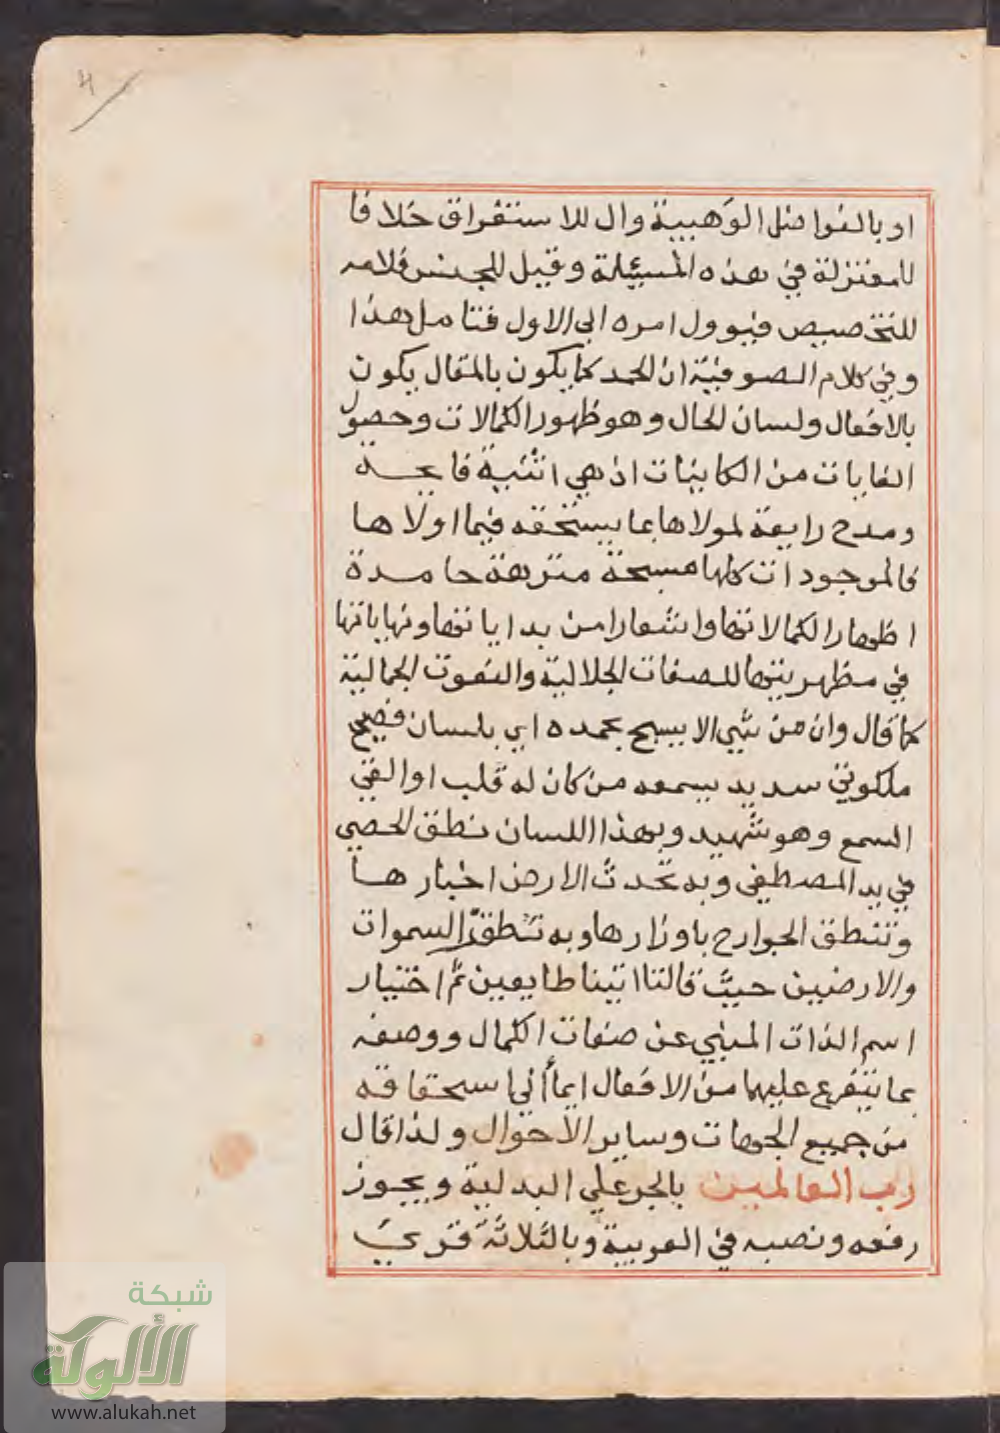 4
او بالفواضل الوهبية وال للاستغراق خلافا
للمعتزلة في هذه المسئلة وقيل للجنس فلامه
للتخصيص فيوول امره الي الاول فتامل هذا
وفي كلام الصوفية ان الحمد كما يكون بالمقال يكون
بالافعال ولسان الحال وهو ظهور الكمالات وحصول
الغايات من الكاينات اذ هي اثنية فاتحة
ومدح رايقة لمولاها بما يستحقه فيما اولاها
فالموجودات كلها مسبحة منزهة حامدة
اظهارا لكمالاتها واشعارا من بداياتها ونهاياتها
في مظهريتها للصفات الجلالية والنعوت الجمالية
كما قال وان من شيي الا يسبح بحمده اي بلسان فصيح
ملكوتي سديد يسمعه من كان له قلب او القي
السمع وهو شهيد وبهذا اللسان نطق الحصي
في يد المصطفي وبه تحدث الارض اخبارها
وتنطق الجوارح باوزارها وبه تنطق السموات
والارضين حيث قالتا اتينا طايعين ثم اختيار
اسم الذات المنبي عن صفات الكمال ووصفه
بما يتفرع عليها من الافعال ايماأ الي استحقاقه
من جميع الجهات وساير الاحوال ولذا قال
رب العالمين بالجر علي البدلية ويجوز
رفعه ونصبه في العربية وبالثلاثة قري
شبكة
الألوكة
www.alukah.net